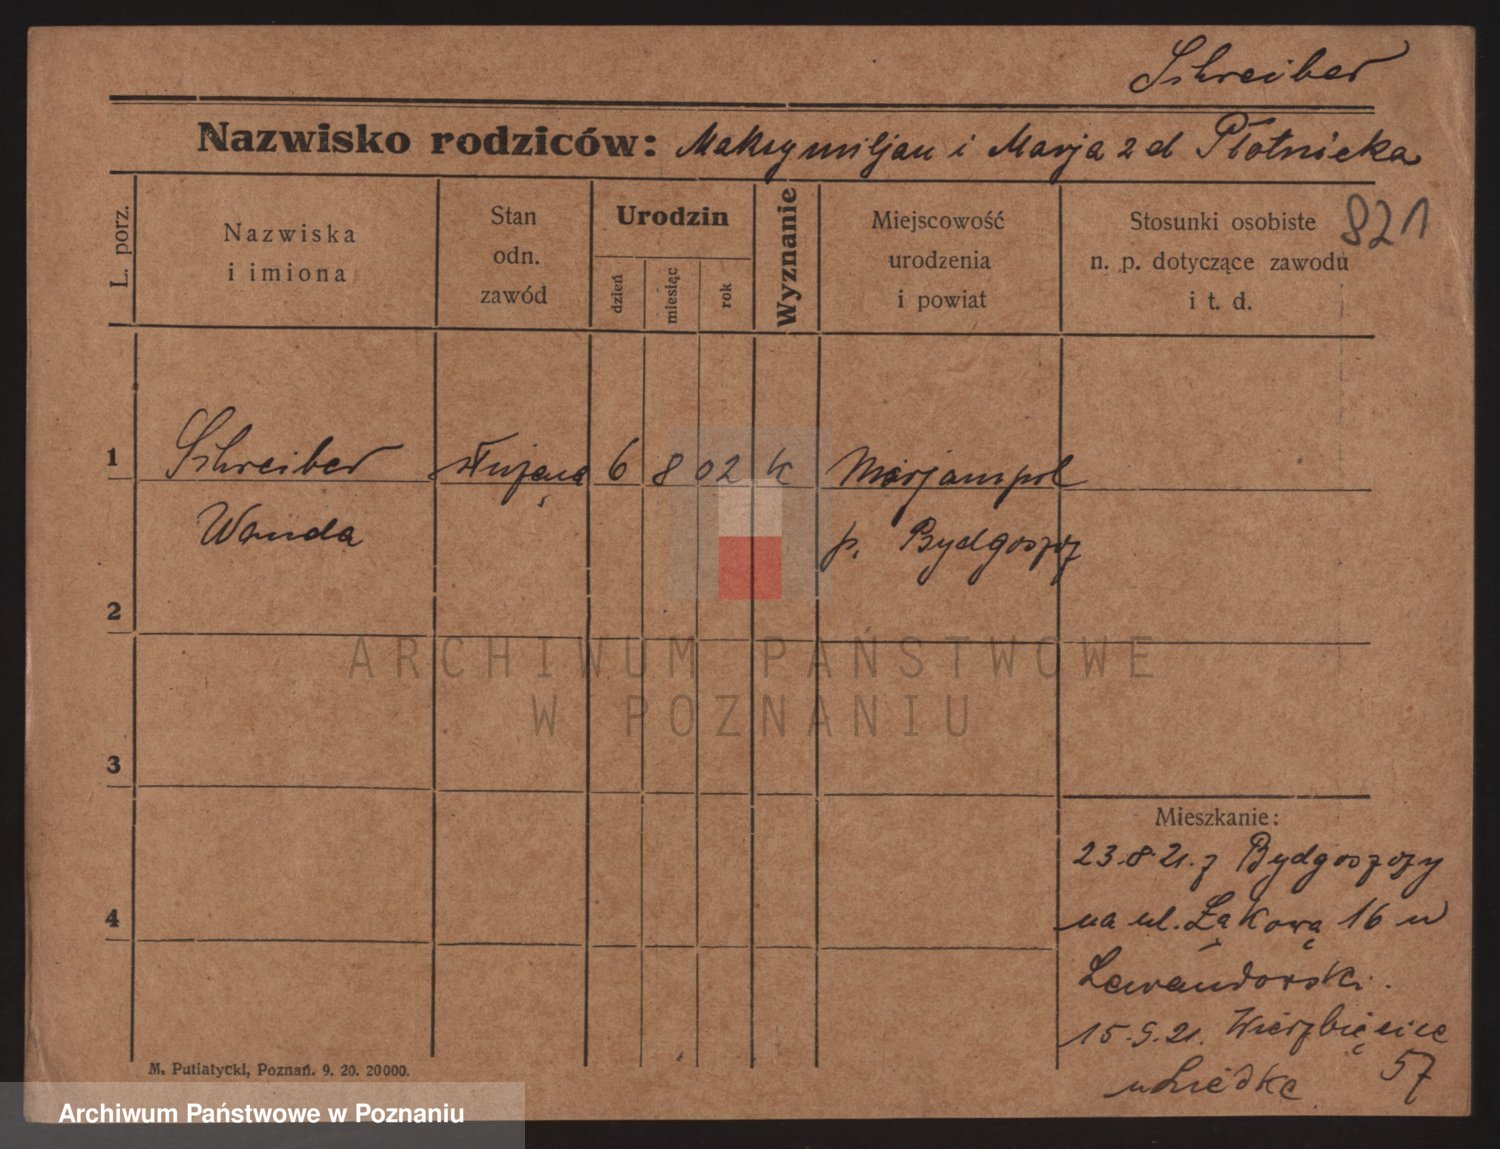 Schreiber
Nazwisko rodziców: Maksymiljan i Marja z d Płotnicka
821
L. porz.
Nazwiska
i imiona
Stan
odn.
zawód
Urodzin
dzień
miesiąc
rok
Wyznanie
Miejscowość
urodzenia
i powiat
Stosunki osobiste
n. p. dotyczące zawodu
i t. d.
1 Schreiber służąca 6 8 02 k Marjampol
Wanda p. Bydgoszcz
2
ARCHIWUM PAŃSTWOWE
W POZNANIU
3
Mieszkanie:
23.8.21. z Bydgoszczy
4
na ul. Łąkową 16 u
Lewandowski.
15.9.21. Wierzbięcice
57
u
M. Putiatycki, Poznań. 9. 20. 20000.
Archiwum Państwowe w Poznaniu